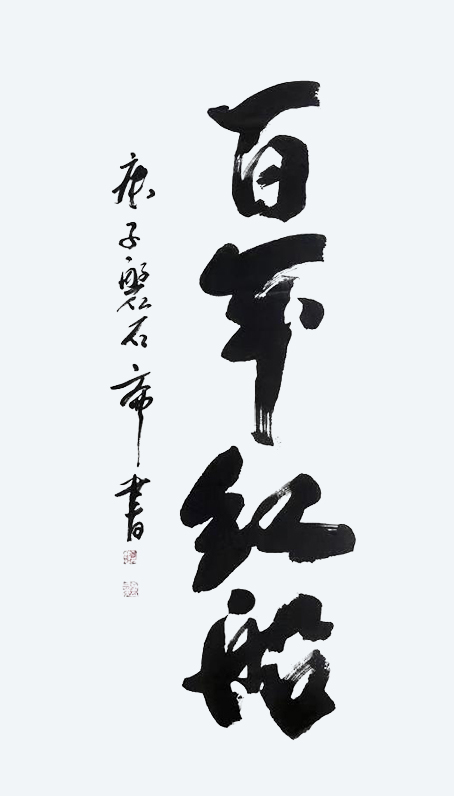 百年红船
庚子磐石斋书